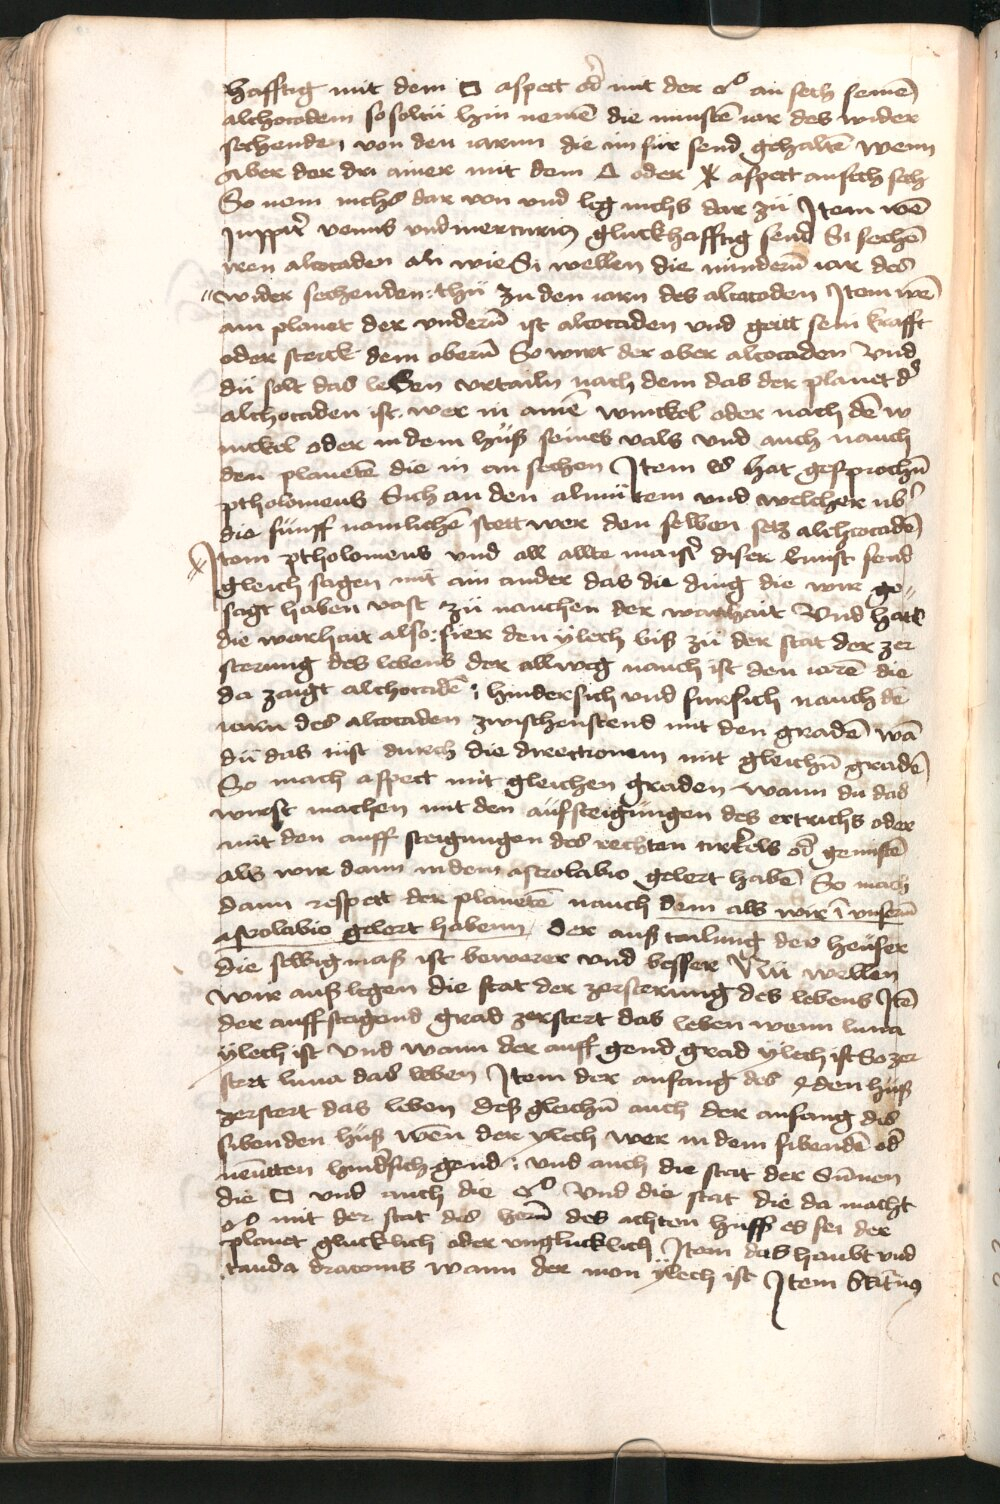 hafftig mit dem □ aspect od̄ mit der ☍ an sech seinē
alchocodem so soltu hin nemē die minstē iar des wider
sechenden von den iarnn die im für send gehaltē wenn
Aber der dri ainer mit dem △ oder ⚹ aspect ansech sech
So nem nichs dar von und leg nichs dar zü Item wē
Juppit̄ venus und mercurius gluckhafftig send Si sechē
iren alcocaden an wie Si wellen die minderū iar des
wider sechenden : thü zu den iarn des alcocoden Item wē
ain planet der underū ist alcocaden und geitt sein krafft
oder sterck dem oberū So wirt der ober alcocaden Und
dü solt das leben urtailn nach dem das der planet d̄
alchocaden ist . wer in ainē winckel oder nach dē w
inckel oder in dem hüß seines vals und auch nauch
den planetē die in an sechen Item es hat gesprochn̄
ptholomeus Sich an den almütem und welcher ub̄
die fünff namlichē stett wer den selben setz alchocadē
Item ptholomeus und all allte maist̄ diser kunst send
gleich sagen mit ain ander das die ding die wir ge„
sagt haben vast zü nauchen der warhait Und hatt
die warhait also : fier den ÿlech biß zü der stat der zer
sterung des lebens der allweg nauch ist den iarē die
da zaigt alchocadē : hindersich und fursich nauch dē
iarn des alcocaden zwischenstend mit den gradē wā
dü das tüst durch die directionem mit gleichn̄ gradē
So mach aspect mit gleichen graden wann du das
wirst machen mit den aüfsteigüngen des ertrichs oder
mit den auff steigungen des rechten cirkels od̄ gemistē
als wir dann in dem astrolabio gelert habē So mach
dann respect der planetē nauch dem als wir ī unserū
astrolabio gelert habenn der auß tailung der heüser
die selbig maß ist bewerer und besser Nü wellen
wir auß legen die stat der zersterung des lebens Itē
der auff staigend grad zerstert das leben wenn luna
ÿlech ist Und wann der auff gend grad ÿlech ist So zer
stert luna das leben Item der anfang des 4den hüß
zerstert das leben deß gleichn̄ auch der anfang des
sibenden hüß wen̄ der ylech wer in dem sibendē od̄
neūtten hind̄sich gend : und auch die stat der Sūnen
die □ und auch die ☍ Und die stat die da macht
☍ mit der stat des herū des achten hüss es sei der
planet glucklich oder unglucklich Item das haubt und
cauda draconis wann der mon ÿlech ist Item